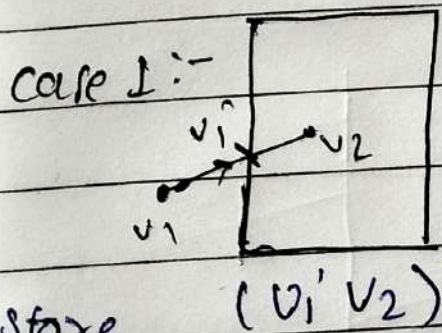 Case I :-
v1'
v2
v1
store (v1' v2)